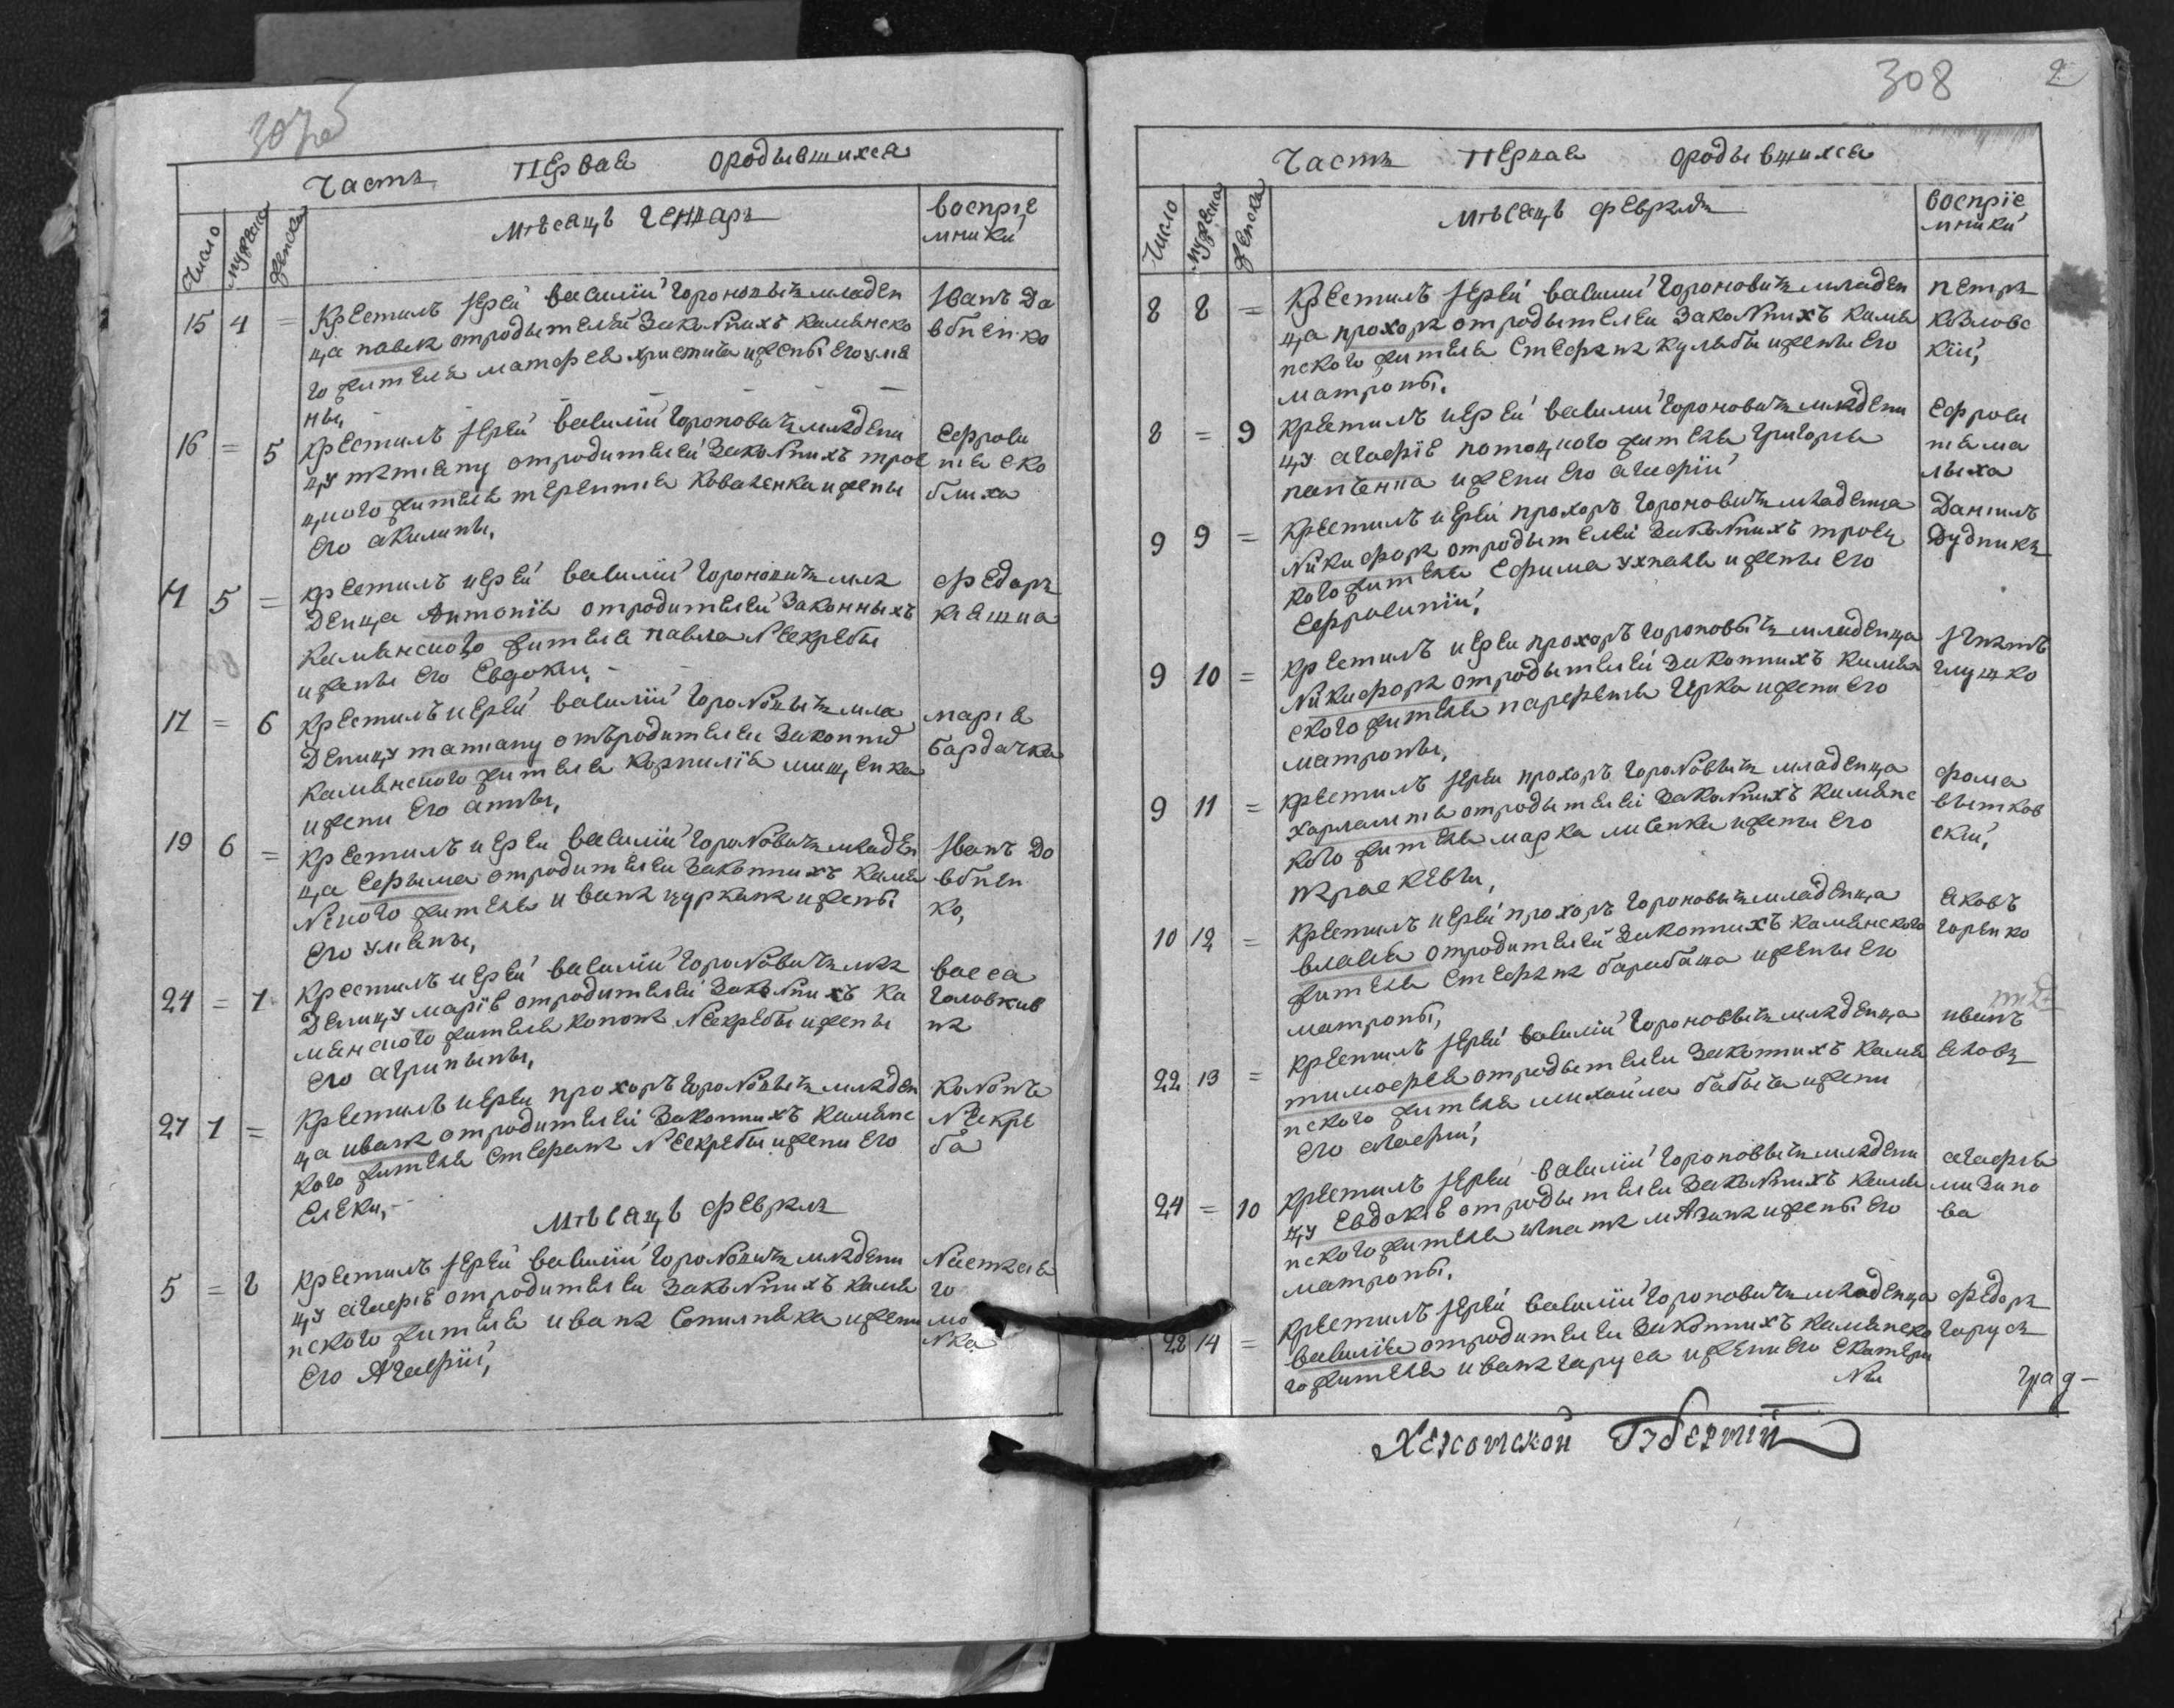 307об
Часть Первая ородывшихся
Число
мужеска
женска
мѣсяцъ генварь
воспріе
мники
15 4 =
Крестилъ іерей василій Гороновичъ младен
ца павла отродытелей законнихъ каменско
го жителя матфея христича ижены его уля
ны,
Іванъ До
вбненко
16 = 5
Крестилъ іерей василій Гороновичъ младени
цу татіану отродителей законнихъ трое
цкого жителя терентия коваленка ижены
его акилины,
Ефроси
ния ско
блиха
17 5 =
крестилъ иерей василій Гороновичъ мла
денца Антонія отродителей законныхъ
каменского жителя павла Некребы
ижены его Евдокии,
Федоръ
кляшна
17 = 6
Крестилъ иерей василій Гороновичъ мла
деницу татиану отъродителеи законних
каменского жителя корнилія мищенка
ижени его анны,
марія
бардачка
19 6 =
Крестилъ иереи василій Гороновичъ младен
ца Ефыма отродителеи законнихъ каме
нского жителя ивана цуркана ижены
его уляны,
Іванъ До
вбнен
ко,
24 = 7
Крестилъ иерей василій Гороновичъ мла
деницу маріе отродителей законнихъ ка
менского жителя конона Некребы ижены
его агрипыны,
васса
Головкив
на
27 7 =
Крестилъ иереи прохоръ Гороновичъ младен
ца ивана отродителей законнихъ каменс
кого жителя стефана Некребы ижени его
елеки,
Кононъ
Некре
ба
мѣсяцъ февраль
5 = 8
Крестилъ іерей василій Гороновичъ младени
цу агафіе отродителеи законнихъ каме
нского жителя ивана Сопилняка ижени
его Агафіи,
Настасія
го
мо
нка
308 2
Часть Первая ородывшихся
Число
мужеска
женска
мѣсяцъ февраль
воспріе
мники
8 8 =
Крестилъ іерей василий Гороновичъ младен
ца прохора отродытелеи законнихъ каме
нского жителя стефана кулибы ижены его
матроны.
петръ
козловс
кій,
8 = 9
крестилъ иерей василий Гороновичъ младени
цу агафіе потоцкого жителя григория
панченна ижени его агафіи
Ефроси
ния ма
лыха
9 9 =
крестилъ иерей прохоръ Гороновичъ младенца
Никифора отродытелей законнихъ троец
кого жителя Ефима ухналя ижены его
Ефросинии,
Даніилъ
Дудникъ
9 10 =
крестилъ иереи прохоръ Гороновичъ младенца
Никифора отродытелей законнихъ каме
ского жителя парфения Герка ижени его
матроны,
Ігнатъ
глущко
9 11 =
крестилъ іереи прохоръ Гороновичъ младенца
харлампия отродытелеи законнихъ каменс
кого жителя марка лисенка ижены его
параскевы,
фома
вытков
скій,
10 12 =
крестилъ иерей прохоръ Гороновичъ младенца
власия отродителей законнихъ каменского
жителя стефана барабаша ижены его
матроны,
яковъ
горенко
22 13 =
крестилъ іерей василій Гороновичъ младенца
тимофея отродытелеи законнихъ каме
нского жителя михайла бабыча ижени
его агафіи,
иванъ
яковъ
24 = 10
крестилъ іерей василій Гороновичъ младени
цу Евдокіе отродытелеи законнихъ каме
нского жителя игната мазана ижены его
матроны.
агафия
мизино
ва
28 14 =
Крестилъ іерей василій Гороновичъ младенца
василия отродителеи законнихъ каменско
го жителя ивана гаруса ижени его екатери
Ни
Федоръ
гарусъ
град-
Херсонской Губерніи